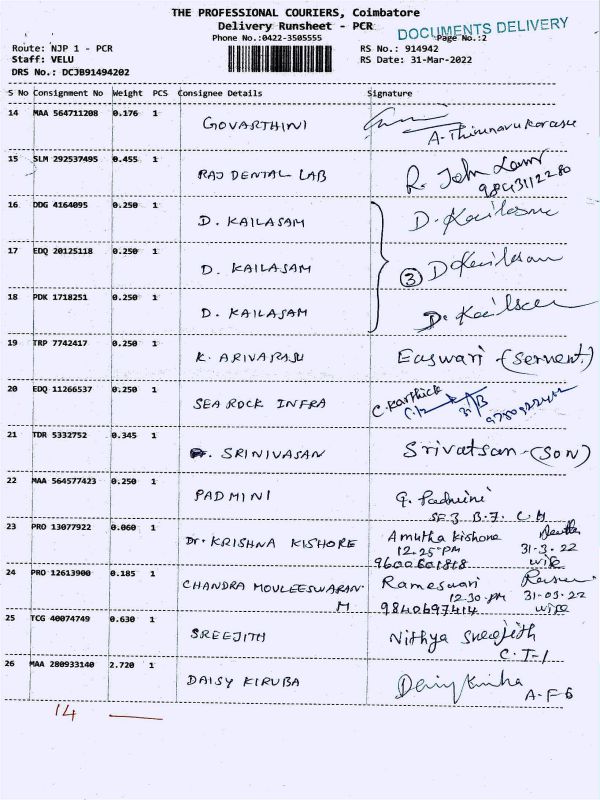 THE PROFESSIONAL COURIERS, Coimbatore
Delivery Runsheet - PCR
DOCUMENTS DELIVERY
Phone No.:0422-3505555
Page No.:2
Route: NJP 1 - PCR
RS No.: 914942
Staff: VELU
RS Date: 31-Mar-2022
DRS No.: DCJB91494202
S No Consignment No Weight PCS Consignee Details Signature
14 MAA 564711208 0.176 1 GOVARTHINI A. Thirunavukarasu
15 SLM 292537495 0.455 1 RAJ DENTAL LAB R. John
9843112280
16 DDG 4164095 0.250 1 D. KAILASAM D. Kailasam
17 EDQ 20125118 0.250 1 D. KAILASAM 3 D Kailasam
18 PDK 1718251 0.250 1 D. KAILASAM D. Kailasam
19 TRP 7742417 0.250 1 K. ARIVARASU Easwari (Servent)
20 EDQ 11266537 0.250 1 SEA ROCK INFRA C. Karthick
31/3
21 TDR 5332752 0.345 1 SRINIVASAN Srivatsan - (Son)
22 MAA 564577423 0.250 1 PADMINI G. Padmini
23 PRO 13077922 0.060 1 Dr. KRISHNA KISHORE Amutha Kishore
12.25 PM 31-3-22
9600601818 wife
24 PRO 12613900 0.185 1 CHANDRA MOULEESWARAN. M Rameswari
12.30 PM 31-03-22
9840697414 wife
25 TCG 40074749 0.630 1 SREEJITH Nithya Sreejith
C.T-1
26 MAA 280933140 2.720 1 DAISY KIRUBA Daisy Kiruba
A-F6
14